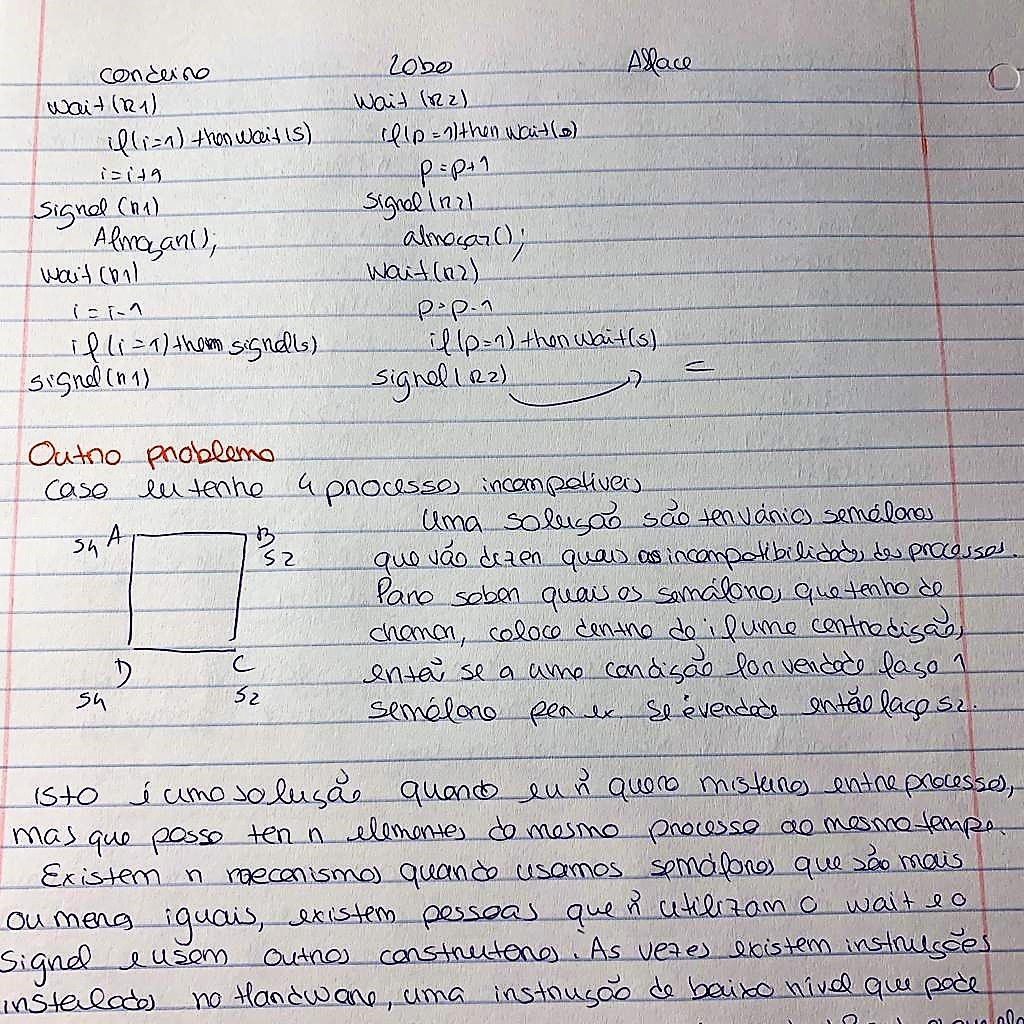 Cordeiro Lobo Alface
Wait(R1) Wait(R2)
if(i=1) then wait(s) if(p=1) then wait(s)
i=i+1 p=p+1
signal(r1) signal(r2)
Almoçar(); almoçar();
wait(r1) wait(r2)
i=i-1 p=p-1
if(i=1) them signal(s) if(p=1) then wait(s)
signal(r1) signal(R2) =
Outro problema
Caso eu tenho 4 processos incompativeis
Uma solução são ter vários semáforos
S4 A B S2
que vão dizer quais as incompatibilidades des processos.
Para saber quais os semáforos que tenho de
chamar, coloco dentro do if uma contradição,
D C
então se a uma condição for verdade faço 1
S4 S2
semáforo por ex. se é verdade então faço s2.
isto é uma solução quando eu ñ quero misturas entre processos,
mas que posso ter n elementos do mesmo processo ao mesmo tempo.
Existem n mecanismos quando usamos semáforos que são mais
ou menos iguais, existem pessoas que ñ utilizam o wait e o
signal e usem outros construtores. As vezes existem instruções
instalados no Handware, uma instrução de baixo nível que pode